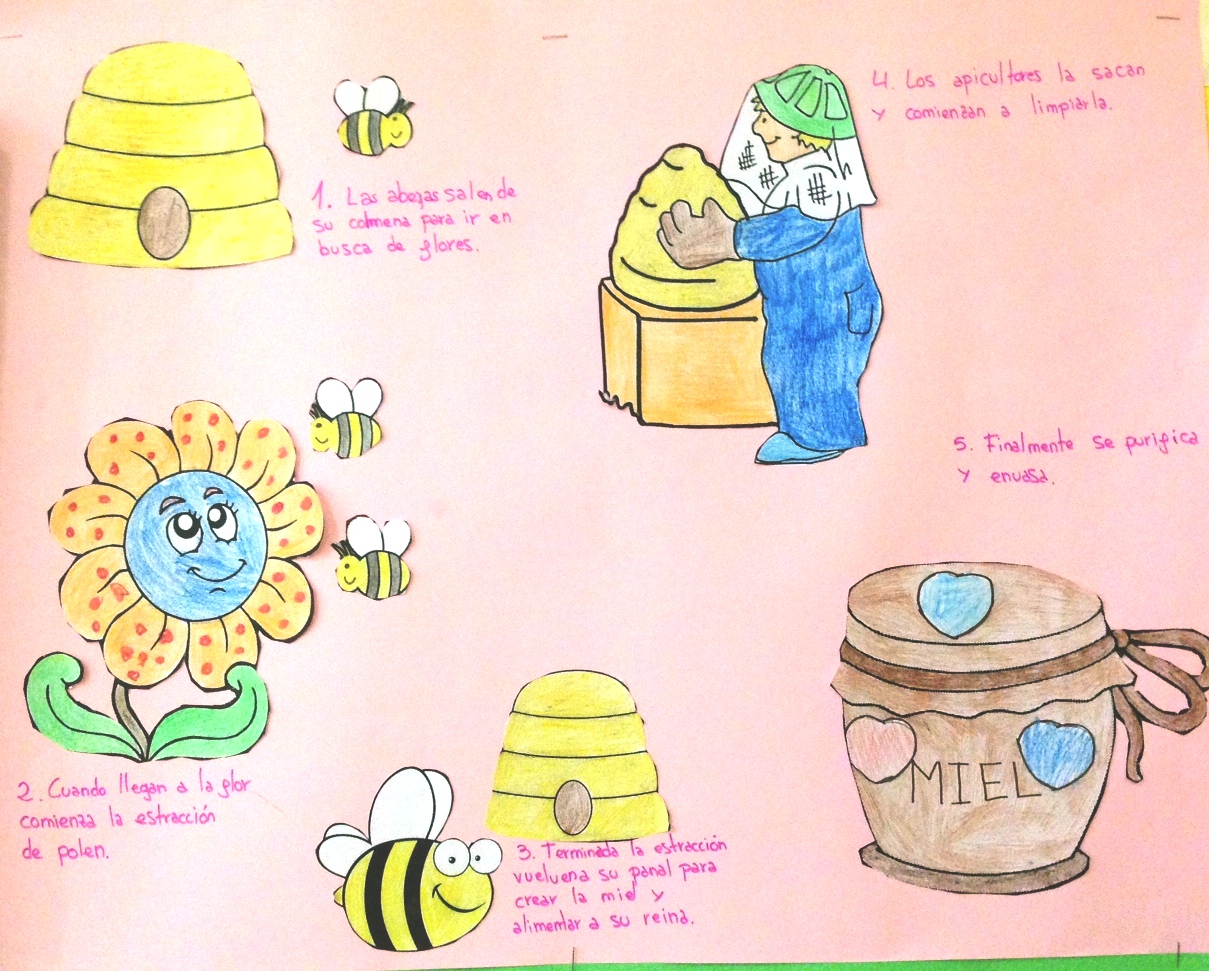 1. Las abejas salen de
su colmena para ir en
busca de flores.
2. Cuando llegan a la flor
comienza la estracción
de polen.
3. Terminada la estracción
vuelven a su panal para
crear la miel y
alimentar a su reina.
4. Los apicultores la sacan
y comienzan a limpiarla.
5. Finalmente se purifica
y envasa.
MIEL